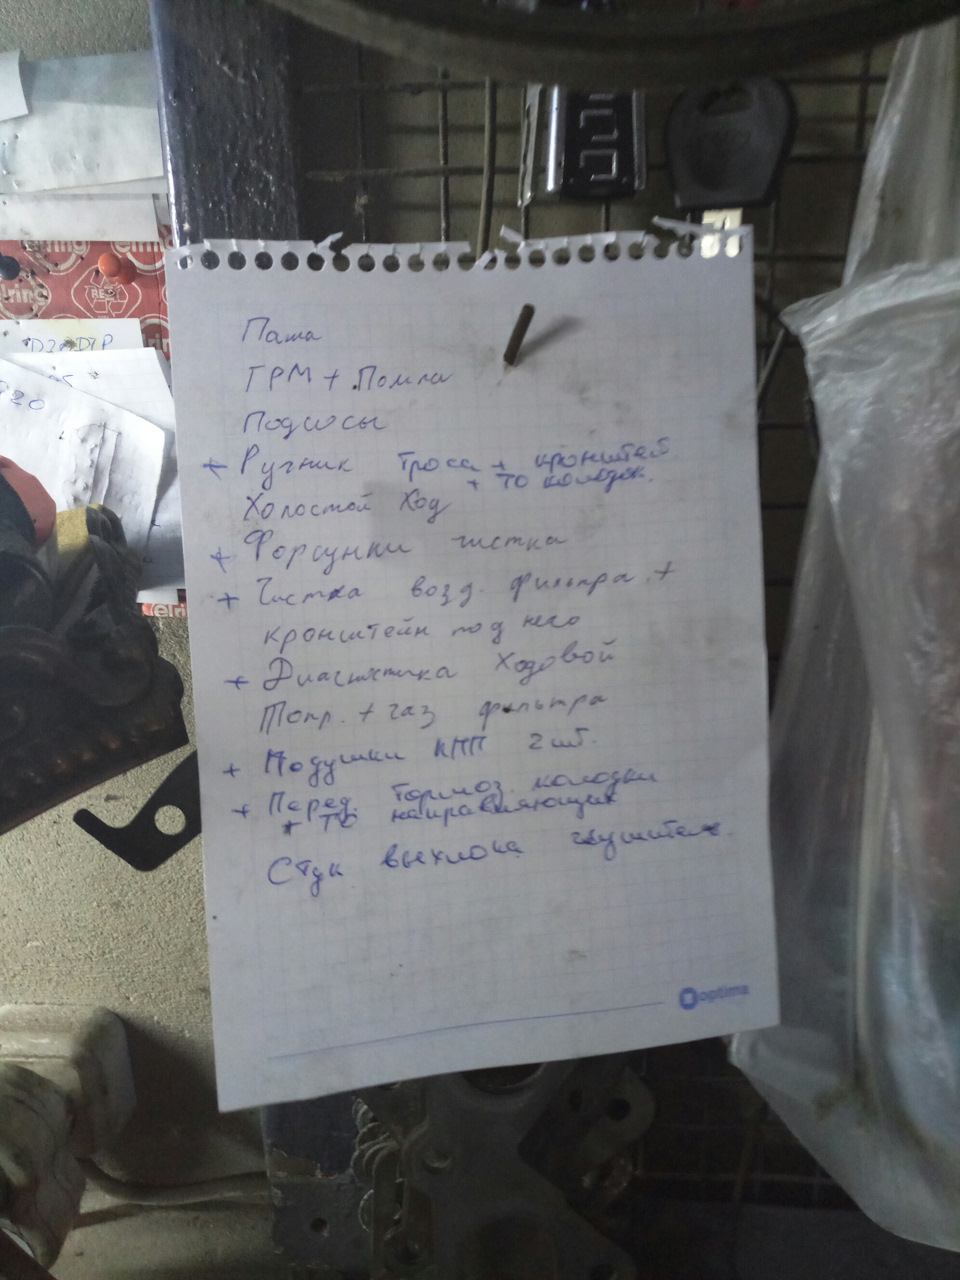 elring
elring
D20DTP
Паша
ТРМ + Помпа
Подсосы
+ Ручник троса + кронштей
+ ТО колодок.
Холостой Ход
+ Форсунки чистка
+ Чистка возд. фильтра +
кронштейн под него
+ Диагностика Ходовой
Топл. + газ фильтра
+ Подушки КПП 2 шт.
+ Перед. тормоз. колодки
+ ТО направляющих
Стук выхлопа глушителя.
optima